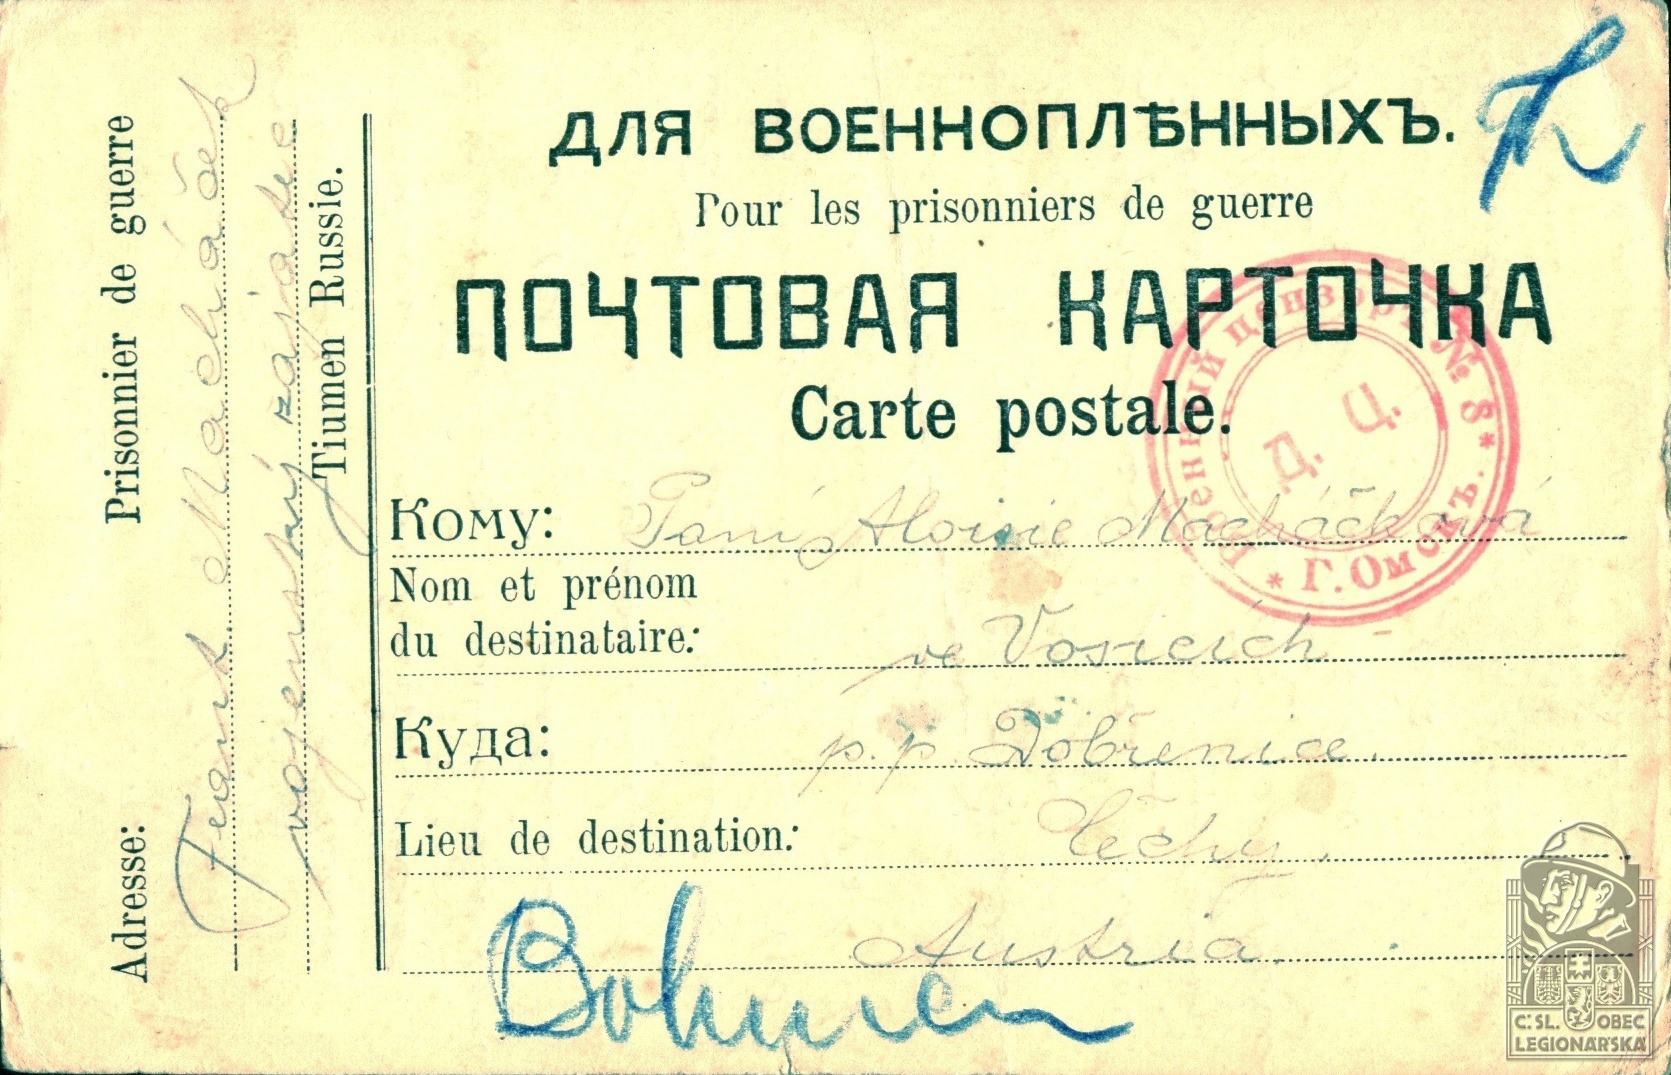 Prisonnier de guerre
Adresse:
Frant. Macháček
vojenský zajatec
Tiumen Russie.
ДЛЯ ВОЕННОПЛѢННЫХЪ.
Pour les prisonniers de guerre
ПОЧТОВАЯ КАРТОЧКА
Carte postale.
Военный цензоръ № 8 * Г. Омскъ. *
Д. Ц.
Кому: Paní Aloisie Macháčková
Nom et prénom
du destinataire: ve Vosicích
Куда: p. p. Dobřenice.
Lieu de destination: Čechy.
Austria.
Bohmen
Č. SL. OBEC
LEGIONÁŘSKÁ